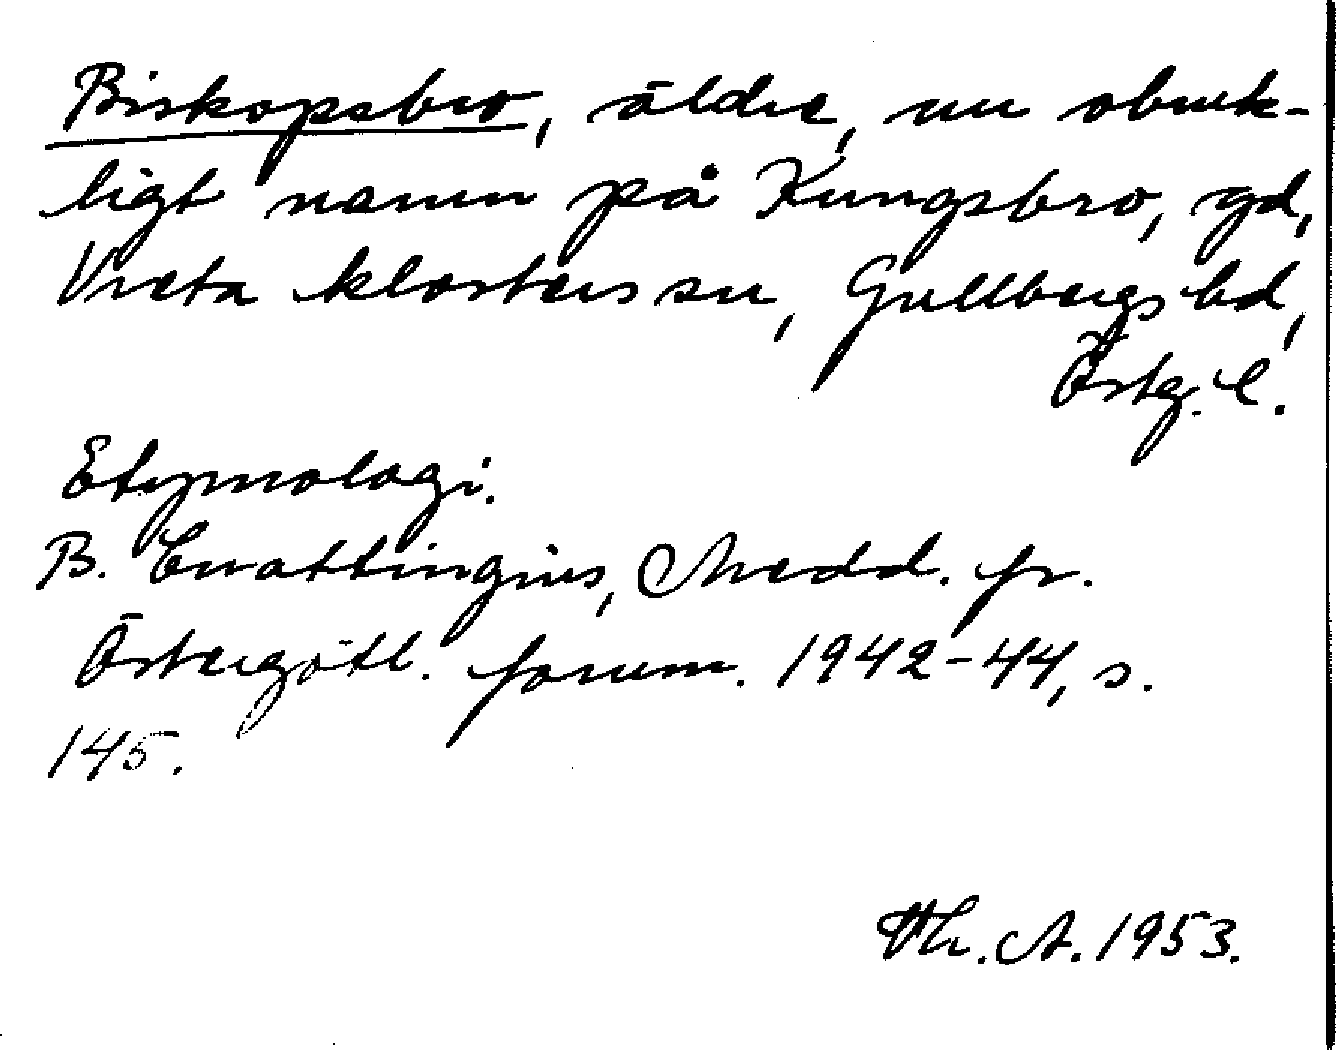 Biskopsbro, äldre, nu obruk-
ligt namn på Kungsbro, gd,
Vreta klosters sn, Gullbergs hd,
Östg. l.
Etymologi.
B. Cnattingius, Medd. fr.
Östergötl. fornm. 1942-44, s.
145.
Th. A. 1953.